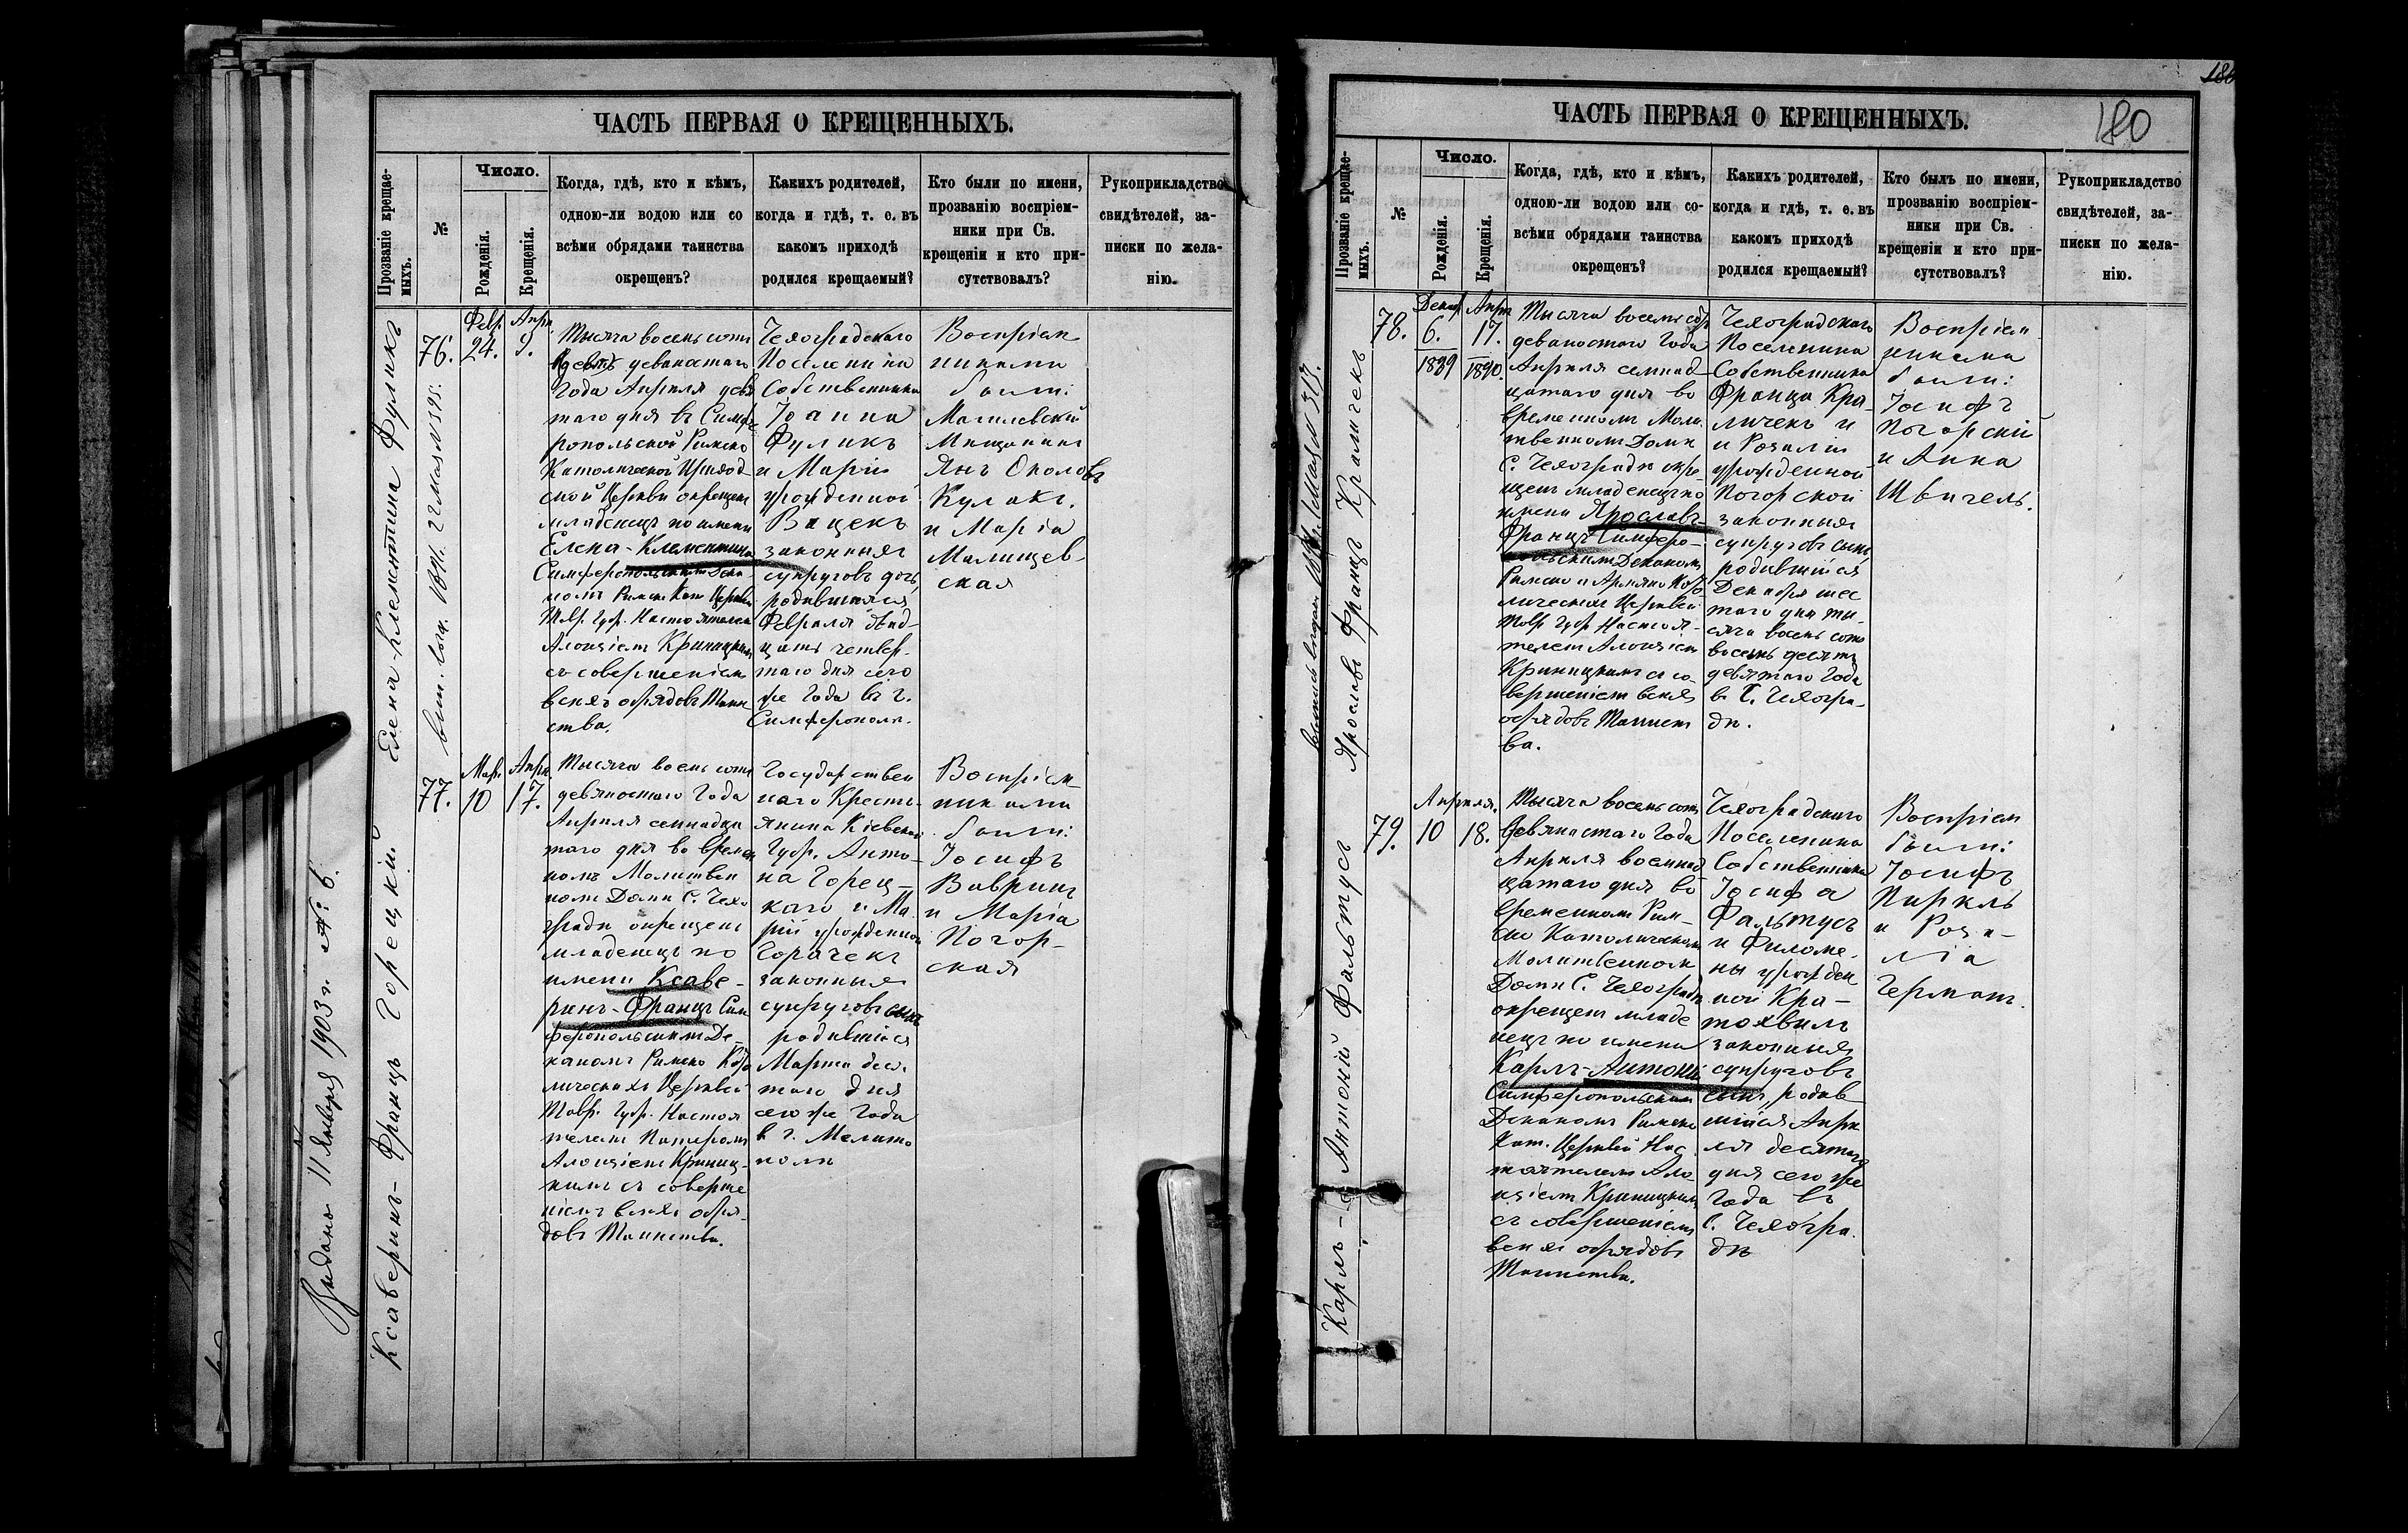 ЧАСТЬ ПЕРВАЯ О КРЕЩЕННЫХЪ.
Прозваніе крещае-
мыхъ.
№
Число.
Рожденія.
Крещенія.
Когда, гдѣ, кто и кѣмъ,
одною-ли водою или со
всѣми обрядами таинства
окрещенъ?
Какихъ родителей,
когда и гдѣ, т. е. въ
какомъ приходѣ
родился крещаемый?
Кто были по имени,
прозванію воспріем-
ники при Св.
крещеніи и кто при-
сутствовалъ?
Рукоприкладство
свидѣтелей, за-
писки по жела-
нію.
Елена-Клементина Фуликъ
76.
Февр. 24.
Апр. 9.
Тысяча восемь сотъ
девяностаго
Года Апрѣля девя
таго дня въ Симфе
ропольской Римско
Католической Приход-
ской Церкви окрещенъ
младенецъ по имени
Елена-Клементина
Симферопольскимъ Дека
номъ Римско Кат. Церкви
Тавр. Губ. Настоятелемъ
Алоизіемъ Криницкимъ
съ совершеніемъ
всѣхъ обрядовъ Таин
ства.
Чехоградскаго
Поселенина
Собственника
Іоанна
Фуликъ
и Маріи
урожденной
Вацекъ
законныхъ
супруговъ дочь,
родившаяся
Февраля двад-
цать четвер-
таго дня сего
же Года въ г.
Симферополѣ.
Воспріем
никами
были:
Могилевскій
Мещанинъ
Янъ Околовъ
Кулакъ.
и Марія
Малищев-
ская
Выдано 11 Января 1903 г. № 6.
Ксаверинъ-Францъ Горецкій.
77.
Мар. 10
Апр. 17.
Тысяча восемь сотъ
девяностаго Года
Апрѣля семнадца
таго дня во времен
номъ Молитвен
номъ Домѣ С. Чехо
градѣ окрещенъ
младенецъ по
имени Ксаве-
ринъ-Францъ Сим
феропольскимъ Де-
каномъ Римско Като
лическихъ Церквей
Тавр. Губ. Настоя
телемъ Патеромъ
Алоизіемъ Криниц-
кимъ съ соверше
ніемъ всѣхъ обря-
довъ Таинства.
Государствен
наго Кресть-
янина Кіевской
Губ. Анто-
на Горец-
каго и Ма
ріи урожденной
Горачекъ
законныхъ
супруговъ сынъ
родившійся
Марта деся
таго дня
сего же Года
въ г. Мелито
полѣ
Воспріем
никами
были:
Іосифъ
Вавринъ
и Марія
Погор-
ская
180
ЧАСТЬ ПЕРВАЯ О КРЕЩЕННЫХЪ.
180
Прозваніе крещае-
мыхъ.
№
Число.
Рожденія.
Крещенія.
Когда, гдѣ, кто и кѣмъ,
одною-ли водою или со-
всѣми обрядами таинства
окрещенъ?
Какихъ родителей,
когда и гдѣ, т. е. въ
какомъ приходѣ
родился крещаемый?
Кто былъ по имени,
прозванію воспріем-
ники при Св.
крещеніи и кто при-
сутствовалъ?
Рукоприкладство
свидѣтелей, за-
писки по жела-
нію.
Ярославъ Францъ Краличекъ
78.
Декаб. 6. 1889
Апр. 17. 1890.
Тысяча восемь сотъ
девяностаго Года
Апрѣля семнад-
цатаго дня во
временномъ Моли
твенномъ Домѣ
С. Чехоградѣ окре
щенъ младенецъ по
имени Ярославъ-
Францъ Симферо-
польскимъ Деканомъ
Римско и Армяно Като
лическихъ Церквей
Тавр. Губ. Настоя-
телемъ Алоизіемъ
Криницкимъ съ со-
вершеніемъ всѣхъ
обрядовъ Таинст
ва.
Чехоградскаго
Поселенина
Собственника
Франца Кра-
личекъ и
и Розаліи
урожденной
Погорской
законныхъ
супруговъ сынъ,
родившійся
Декабря шес
таго дня ты-
сяча восемь сотъ
восемьдесятъ
девятаго Года
въ С. Чехогра-
дѣ.
Воспріем
никами
были:
Іосифъ
Погорскій
и Анна
Швигель.
Карлъ-Антоній Фальтусъ
79.
Апрѣля.
10
18.
Тысяча восемь сотъ
девяностаго Года
Апрѣля восемнад
цатаго дня во
временномъ Рим-
ско Католическомъ
Молитвенномъ
Домѣ С. Чехоградѣ
окрещенъ младе
нецъ по имени
Карлъ-Антоній
Симферопольскимъ
Деканомъ Римско
Кат. Церквей Нас
тоятелемъ Ало
изіемъ Криницкимъ
съ совершеніемъ
всѣхъ обрядовъ
Таинства.
Чехоградскаго
Поселенина
Собственника
Іосифа
Фальтусъ
и Филоме-
ны урожден
ной Кра-
тохвилъ
законныхъ
супруговъ
сынъ, родив
шійся Апрѣ
ля десятаго
дня сего же
Года въ
С. Чехогра.
дѣ
Воспріем
были:
Іосифъ
Пиркль
и Роза-
лія
Германъ.